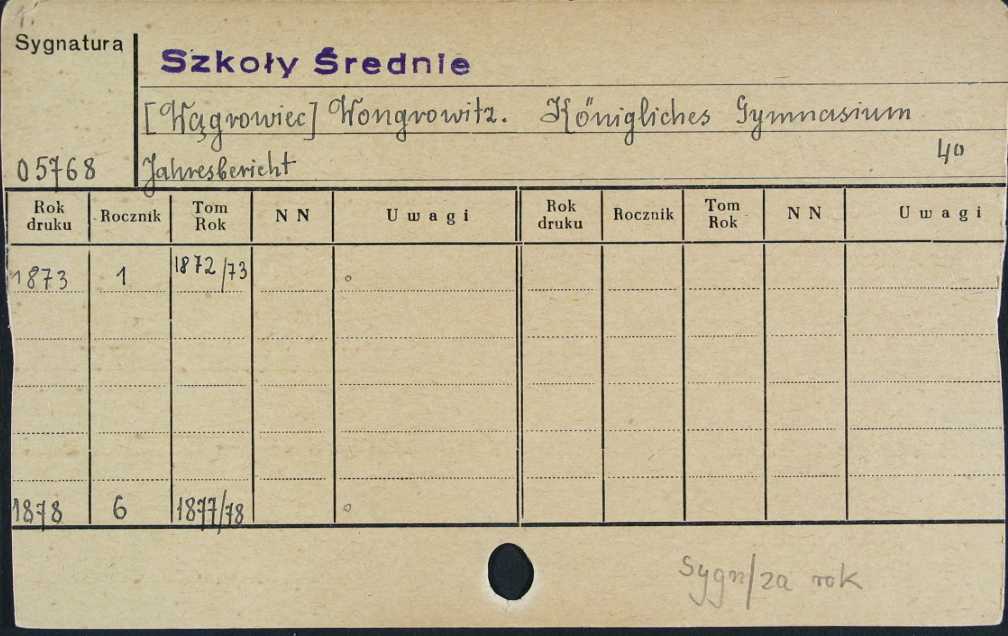 Sygnatura
Szkoły Średnie
[Wągrowiec] Wongrowitz. Königliches Gymnasium
05768 Jahresbericht 40
Rok druku Rocznik Tom Rok NN Uwagi Rok druku Rocznik Tom Rok NN Uwagi
1873 1 1872/73
1878 6 1877/78
Sygn/za rok